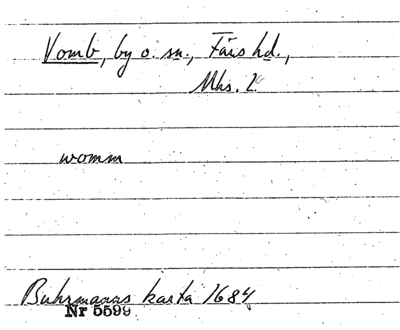 Vomb, by o. sn., Färs hd.,
Mhs. L.
womm
Buhrmanns karta 1684
Nr 5599